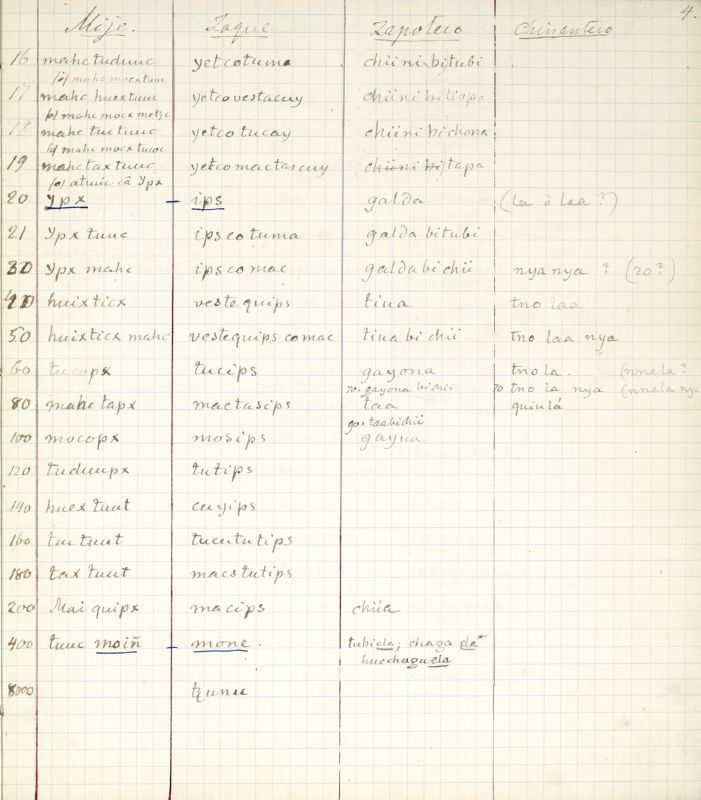 4.
Mije. Zoque Zapoteco Chinanteco
16 mahc tuduuc yetcotuma chiini bitubi
(o) mahc mocxtuuc
17 mahc huextuuc yetcovestacuy chiini bitiopa
(o) mahc mocx metzc
18 mahc tuctuuc yetcotucay chiini bichona
(o) mahc mocx tucoc
19 mahctaxtuuc yetcomactascuy chiini bitapa
(o) atuuc câ Ypx
20 Ypx - ips galda (la ò laa ?)
21 Ypx tuuc ipscotuma galda bitubi
30 Ypx mahc ipscomac galdabichii nya nya ? (20?)
40 huixticx vestequips tiua tno laa
50 huixticx mahc vestequips comac tiua bi chii tno laa nya
60 tucopx tucips gayona tno la. (nne la ?
70. gayona bichii 70 tno la nya (nnela nya
80 mahctapx mactasips taa quiulá
90. taabichii
100 mocopx mosips gayua
120 tuduupx tutips
140 huextuut cuyips
160 tuctuut tucututips
180 tax tuut macstutips
200 Mai quipx macips chiia
400 tuuc moiñ - mone. tubiela; chaga ela*
huechaguela
8000 tzunu